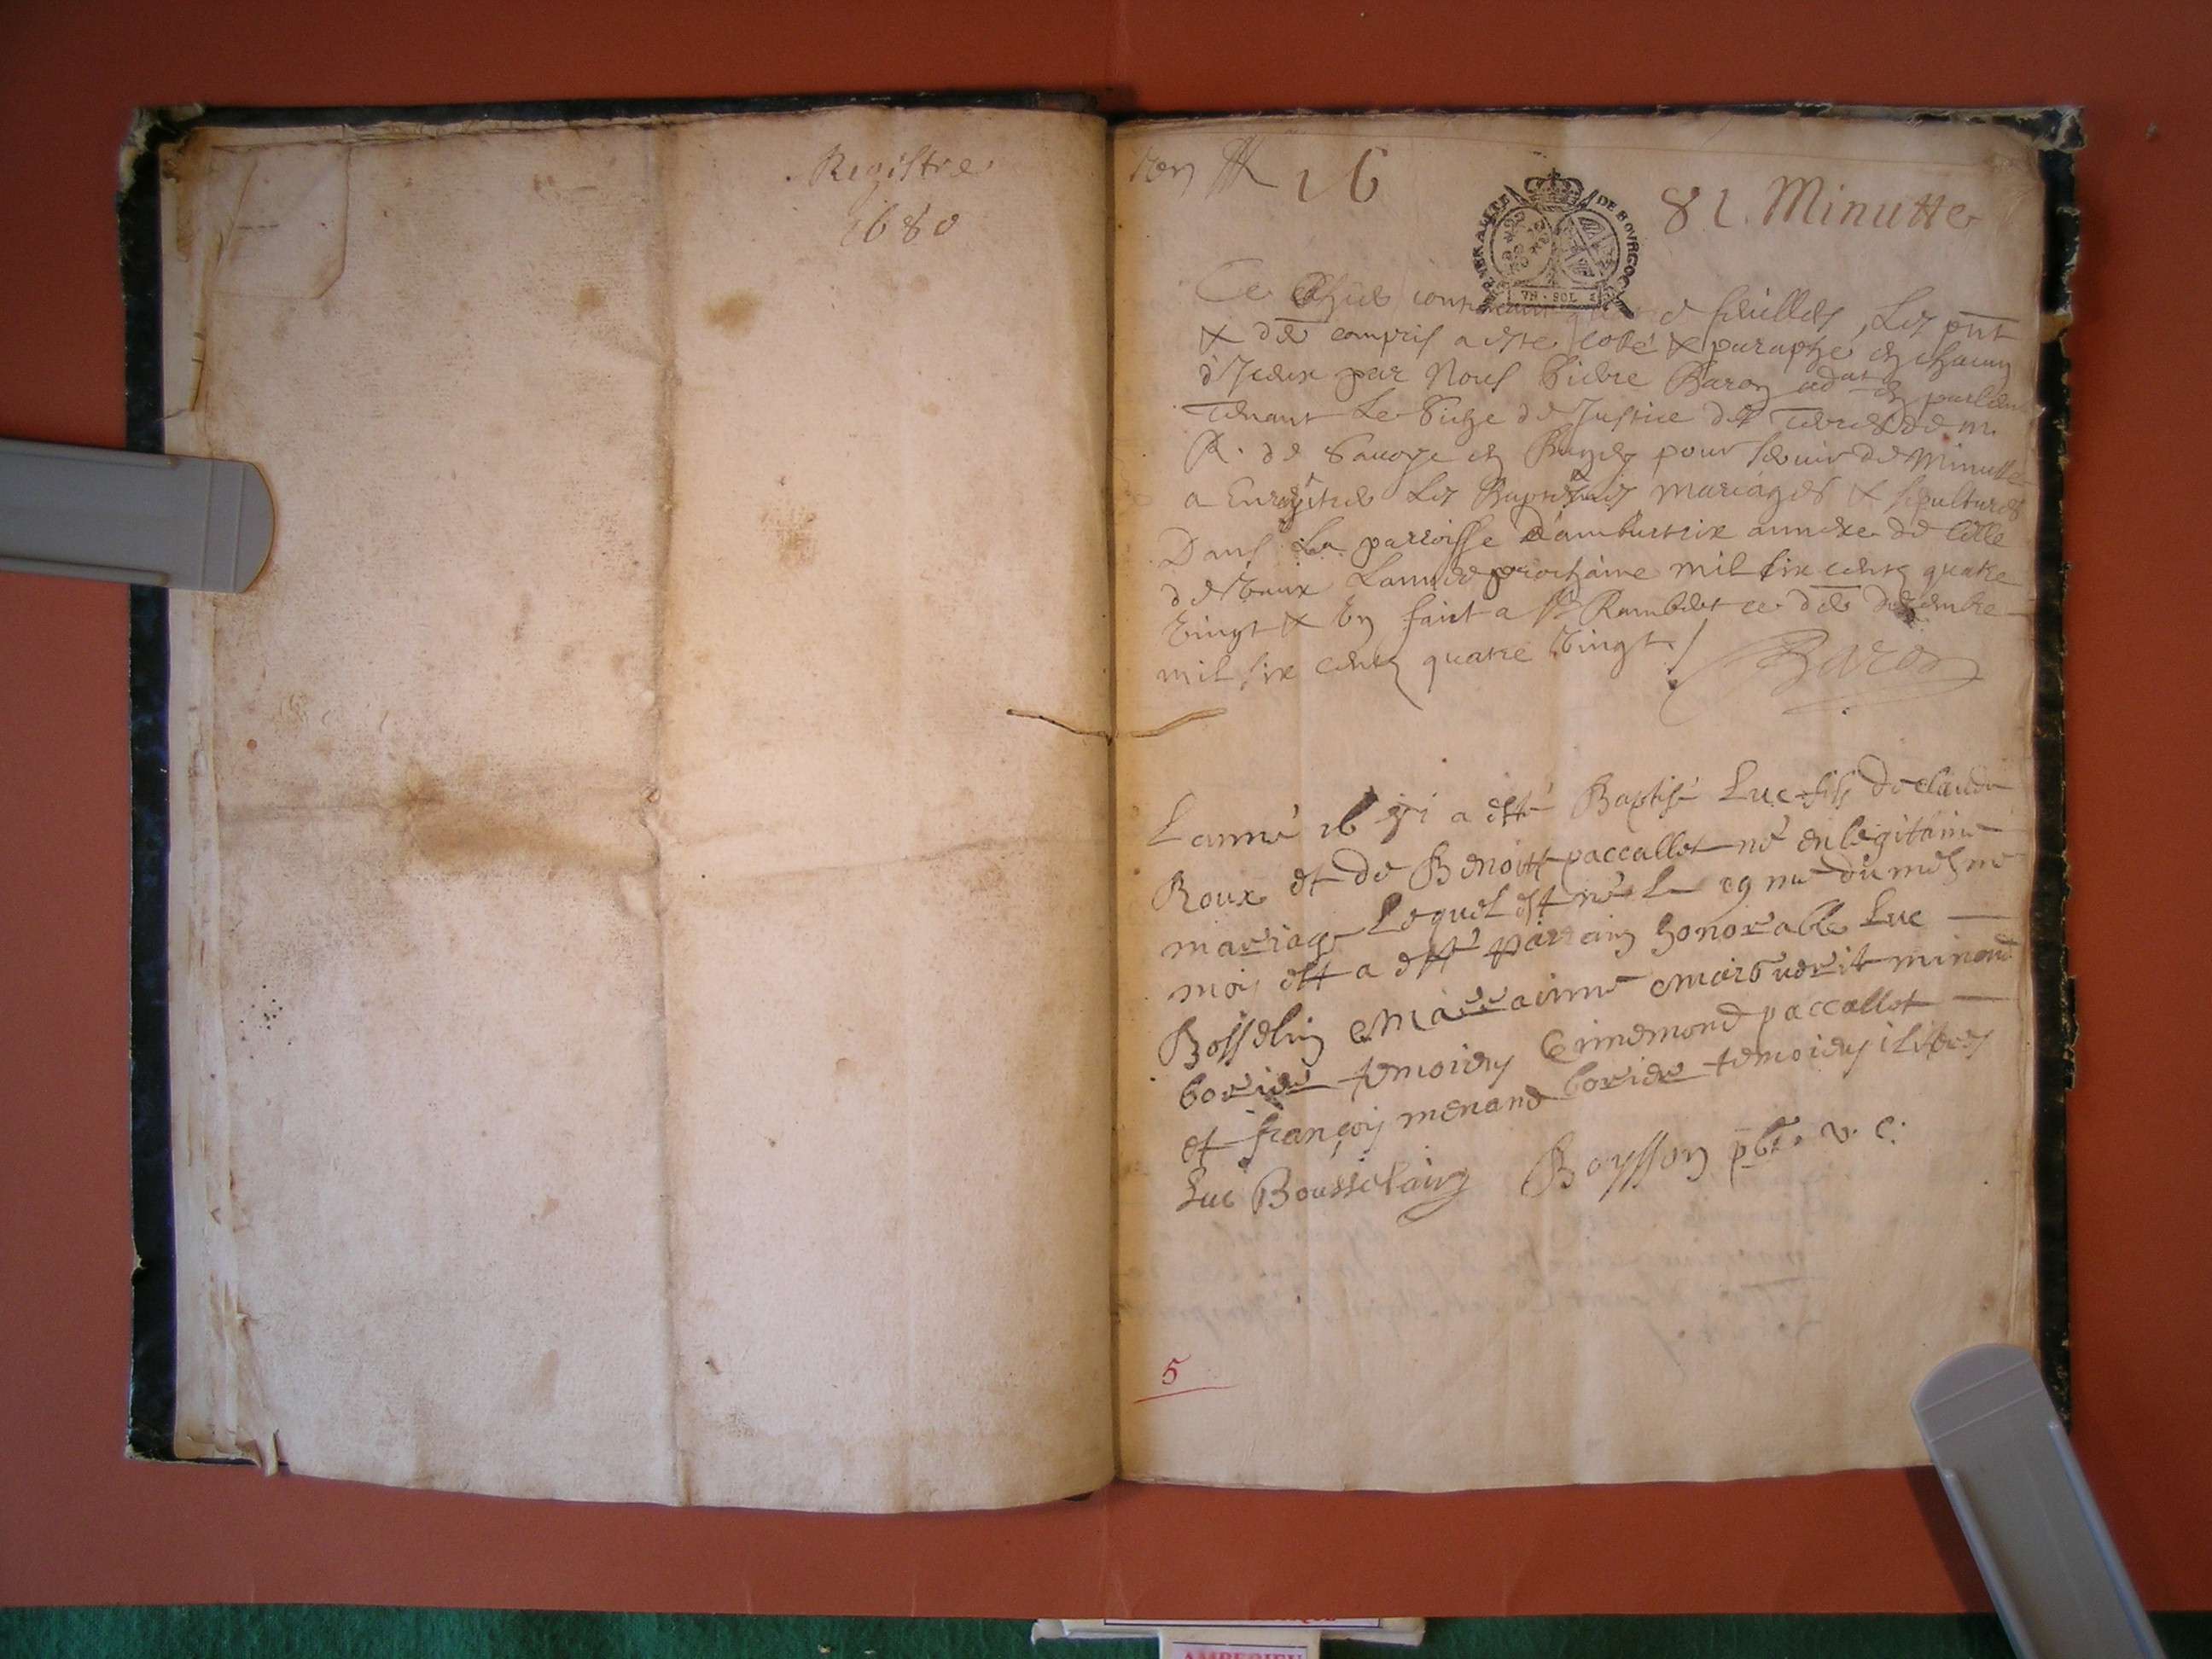 Registre
1680
16
81. Minutte
GENERALITE DE BOVRGOG
VN SOL
Ce Cahier contenant feuillets, Les pnt
& der compris a este cotté & paraphé en chacun
d'Iceux par Nous Baron adat en parlem
tenant Le Siege de Justice des Terres de m.
R. de Savoye en Bugey pour servir de Minutte
a Enregistrer Les Baptesmes mariages & sepultures
Dans La parroisse d'ambutrix annexe de celle
de Vaux Lannée prochaine mil six cents quatre
vingt & un faict a St Rambert ce der decembre
mil six cents quatre vingt /
Baron
Lanné 1681 a esté Baptisé Luc fils de claude
Roux et de Benoitte paccallet né en legitime
mariage Lequel est né le du mesme
mois et a esté parrain honorable Luc
Bosselin Marrainne Marguerite minand
temoiens Ennemond paccallet
et françois menand temoiens
Luc Bousselaing Boysson pbre v. c.
5
AMBERIEU